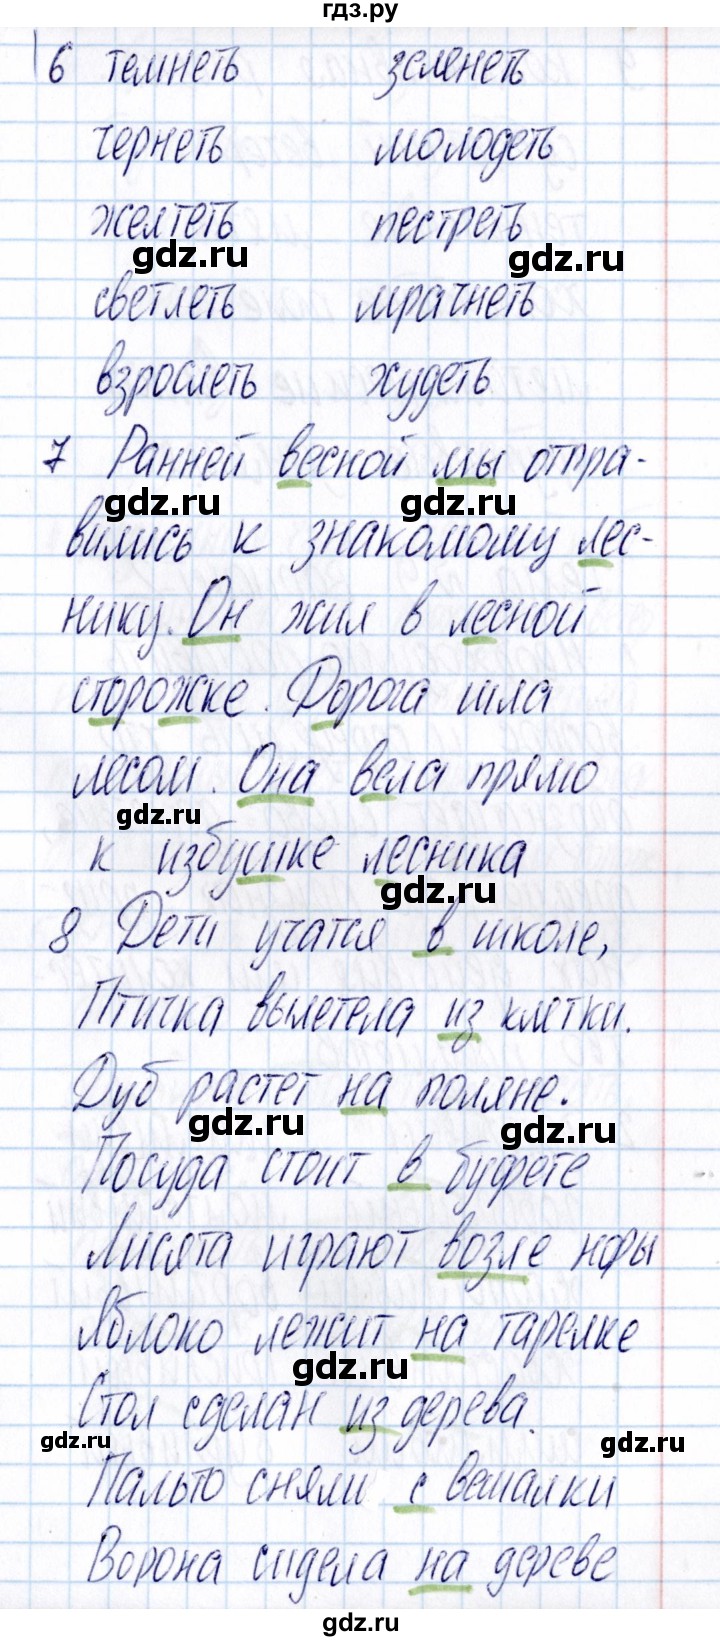 гдз.ру
6 темнеть зеленеть
чернеть молодеть
желтеть пестреть
gdz.ru gdz.ru
светлеть мрачнеть
взрослеть худеть
7 Ранней весной мы отпра-
gdz.ru gdz.ru
вились к знакомому лес-
нику. Он жил в лесной
сторожке. Дорога шла
лесом. Она вела прямо
gdz.ru
к избушке лесника
gdz.ru
8 Дети учатся в школе,
Птичка вылетела из клетки.
Дуб растет на поляне.
gdz.ru gdz.ru
Посуда стоит в буфете
Лисята играют возле норы
Яблоко лежит на тарелке
gdz.ru
Стол сделан из дерева.
gdz.ru gdz.ru
Пальто сняли с вешалки
Ворона сидела на дереве
gdz.ru